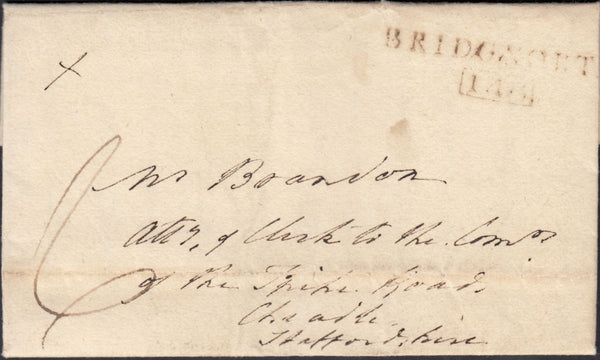 BRIDGNORT
x
6
Mr Brandon
Atty, & Clerk to the Com.rs
of the Road,
Cheadle
Staffordshire